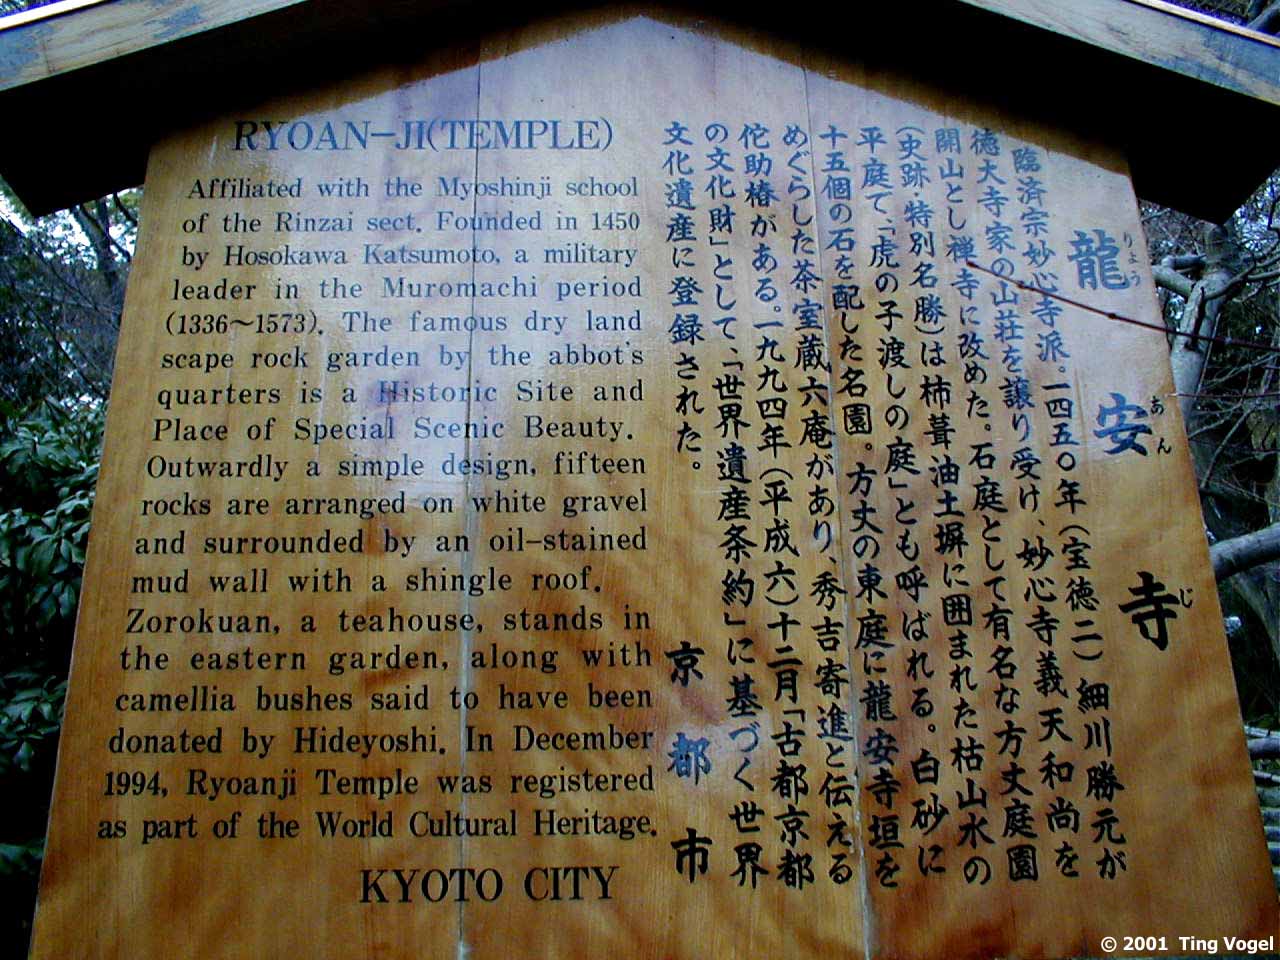 RYOAN-JI(TEMPLE)
Affiliated with the Myoshinji school
of the Rinzai sect. Founded in 1450
by Hosokawa Katsumoto, a military
leader in the Muromachi period
(1336~1573). The famous dry land
scape rock garden by the abbot's
quarters is a Historic Site and
Place of Special Scenic Beauty.
Outwardly a simple design, fifteen
rocks are arranged on white gravel
and surrounded by an oil-stained
mud wall with a shingle roof.
Zorokuan, a teahouse, stands in
the eastern garden, along with
camellia bushes said to have been
donated by Hideyoshi. In December
1994, Ryoanji Temple was registered
as part of the World Cultural Heritage.
KYOTO CITY
龍安寺
りょうあんじ
臨済宗妙心寺派。一四五〇年(宝徳二)細川勝元が
徳大寺家の山荘を譲り受け、妙心寺義天和尚を
開山とし禅寺に改めた。石庭として有名な方丈庭園
(史跡・特別名勝)は柿葺油土塀に囲まれた枯山水の
平庭で、「虎の子渡しの庭」とも呼ばれる。白砂に
十五個の石を配した名園。方丈の東庭に龍安寺垣を
めぐらした茶室蔵六庵があり、秀吉寄進と伝える
佗助椿がある。一九九四年(平成六)十二月「古都京都
の文化財」として、「世界遺産条約」に基づく世界
文化遺産に登録された。
京都市
© 2001 Ting Vogel